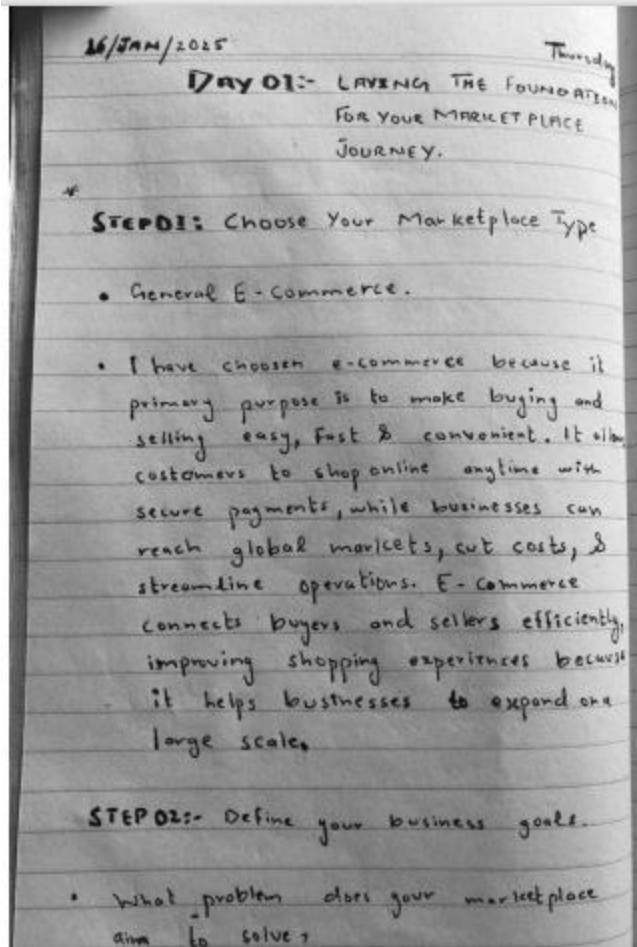 16/JAN/2025 Thursday
DAY 01:- LAYING THE FOUNDATION
FOR YOUR MARKETPLACE
JOURNEY.
*
STEP01: Choose Your Marketplace Type
• General E-commerce.
• I have choosen e-commerce because it
primary purpose is to make buying and
selling easy, Fast & convenient. It allow
costomers to shop online anytime with
secure payments, while businesses can
reach global markets, cut costs, &
streamline operations. E-Commerce
connects buyers and sellers efficiently,
improving shopping experiences because
it helps businesses to expand on a
large scale.
STEP 02:- Define your business goals.
• What problem does your marketplace
aim to solve?